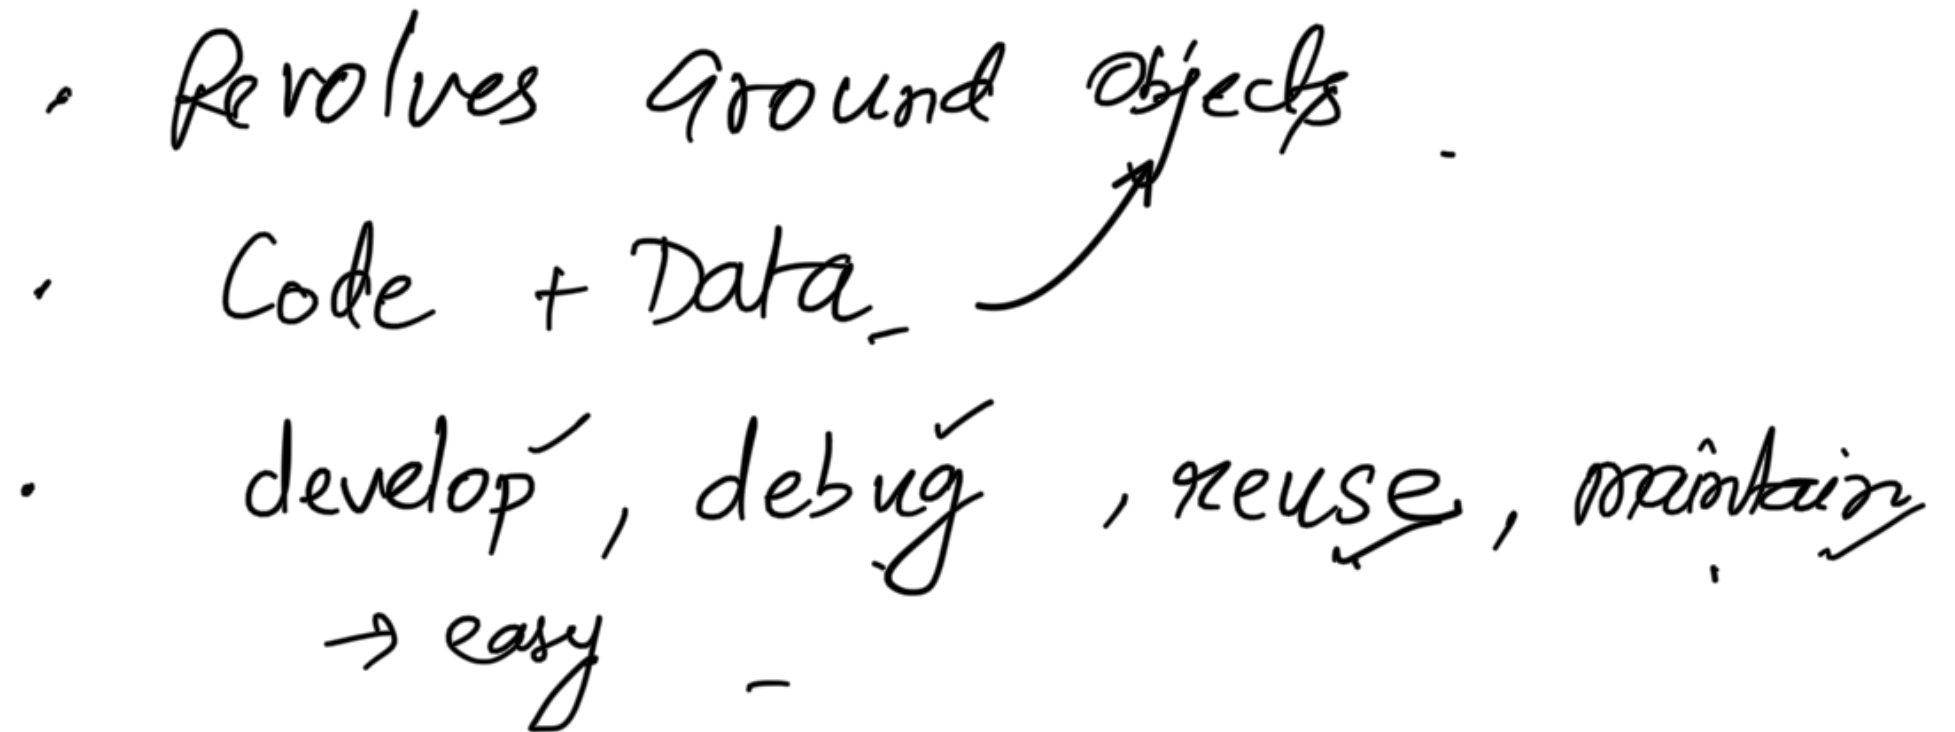 . Revolves around objects.
. Code + Data
. develop, debug, reuse, maintain
→ easy